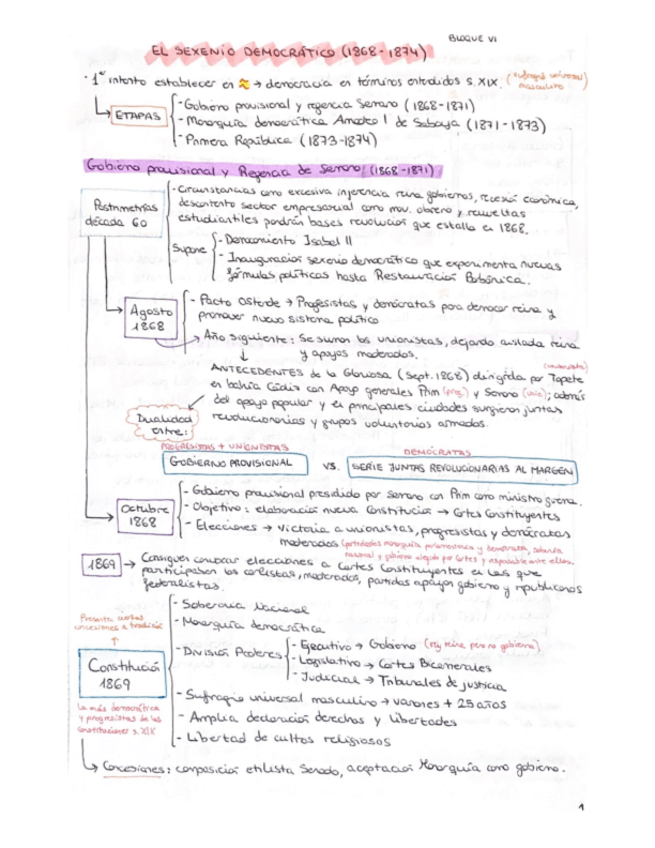 BLOQUE VI
EL SEXENIO DEMOCRÁTICO (1868-1874)
· 1er intento establecer en → democracia en términos entendidos s. XIX. (sufragio universal masculino)
ETAPAS
- Gobierno provisional y regencia Serrano (1868-1871)
- Monarquía democrática Amadeo I de Saboya (1871-1873)
- Primera República (1873-1874)
Gobierno provisional y Regencia de Serrano (1868-1871)
Postrimerías década 60
- Circunstancias como excesiva injerencia reina gobiernos, recesión económica,
descontento sector empresarial como mov. obrero y revueltas
estudiantiles pondrán bases revolución que estalla en 1868.
Supone
- Derrocamiento Isabel II
- Inauguración sexenio democrático que experimenta nuevas
fórmulas políticas hasta Restauración Borbónica.
Agosto 1868
- Pacto Ostende → Progresistas y demócratas para derrocar reina y
promover nuevo sistema político
Año siguiente: Se suman los unionistas, dejando aislada reina
y apoyos moderados.
ANTECEDENTES de la Gloriosa (Sept. 1868) dirigida por Topete (unionista)
en bahía Cádiz con Apoyo generales Prim (prog.) y Serrano (unio.); además
del apoyo popular y en principales ciudades surgieron juntas
revolucionarias y grupos voluntarios armados.
Dualidad entre:
PROGRESISTAS + UNIONISTAS
DEMÓCRATAS
GOBIERNO PROVISIONAL VS. SERIE JUNTAS REVOLUCIONARIAS AL MARGEN
Octubre 1868
- Gobierno provisional presidido por Serrano con Prim como ministro guerra.
- Objetivo: elaboración nueva Constitución → Cortes Constituyentes
- Elecciones → Victoria a unionistas, progresistas y demócratas
moderados (partidarios monarquía parlamentaria y democrática, soberanía
nacional y gobierno elegido por Cortes y responsable ante ellas)
1869 → Consiguen convocar elecciones a Cortes Constituyentes en las que
participaban los carlistas, moderados, partidos apoyan gobierno y republicanos
federalistas.
Presenta ciertas concesiones a tradición
Constitución 1869
La más democrática
y progresistas de las
constituciones s. XIX
- Soberanía Nacional
- Monarquía democrática
- División Poderes
- Ejecutivo → Gobierno (rey reina pero no gobierna)
- Legislativo → Cortes Bicamerales
- Judicial → Tribunales de justicia
- Sufragio universal masculino → varones + 25 años
- Amplia declaración derechos y libertades
- Libertad de cultos religiosos
Concesiones: composición elitista Senado, aceptación Monarquía como gobierno.
1